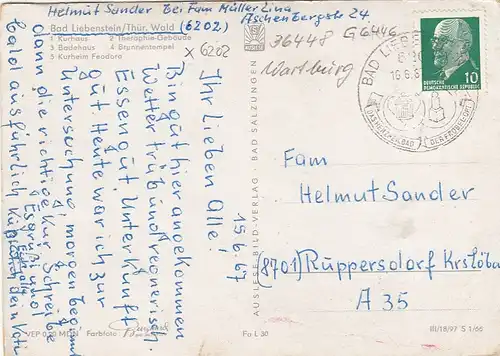 Helmut Sander bei Fam Müller Lina
Aschenbergstr 24
Bad Liebenstein/Thür. Wald (6202)
1 Kurhaus 2 Theraphie-Gebäude
3 Badehaus 4 Brunnentempel
5 Kurheim Feodora
x 6202
36448 G6446
Wartburg
15.6.67
Ihr Lieben Alle!
Bin gut hier angekommen
Wetter trüb und regnerisch.
Essen gut, Unterkunft
gut. Heute war ich zur
Untersuchung, morgen beginnt
dann die richtige Kur. Schreibe
bald ausführlich
Es grüßt und
küßt Euch Dein Vati
BAD LIEBENSTEIN
16.6.
DAS HERZHEILBAD
DER FENGRUPPE
DEUTSCHE
DEMOKRATISCHE REPUBLIK
10
Fam
Helmut Sander
(8701) Ruppersdorf Krs Löbau
A 35
AUSLESE-BILD-VERLAG · BAD SALZUNGEN
VEP 0,20 MDN Farbfoto
Fo L 30
III/18/97 S 1/66